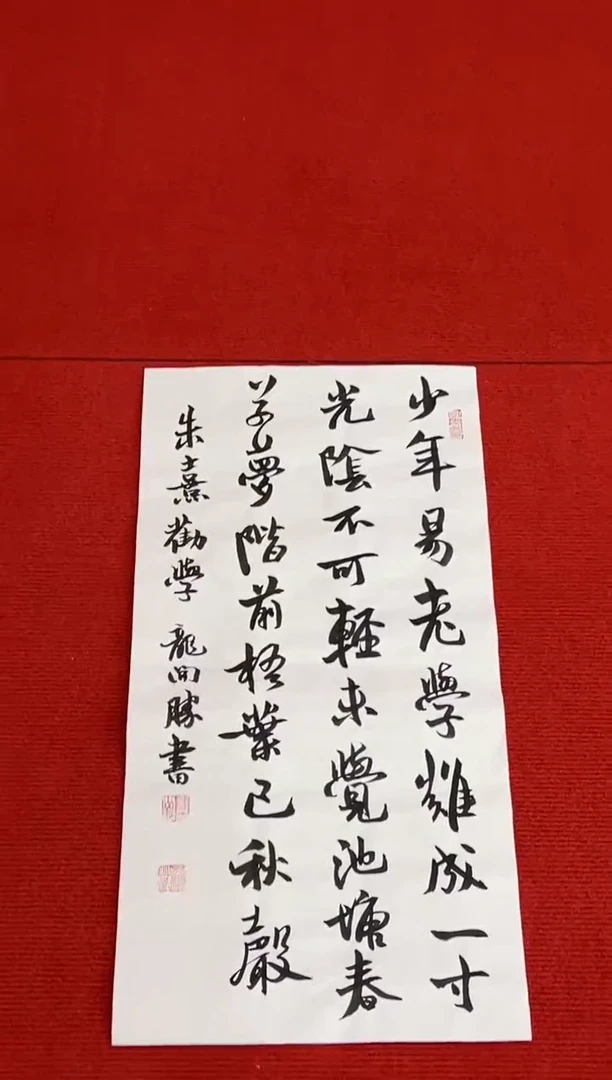 少年易老學難成一寸
光陰不可輕未覺池塘春
草夢階前梧葉已秋聲
朱熹勸學 龍向勝書